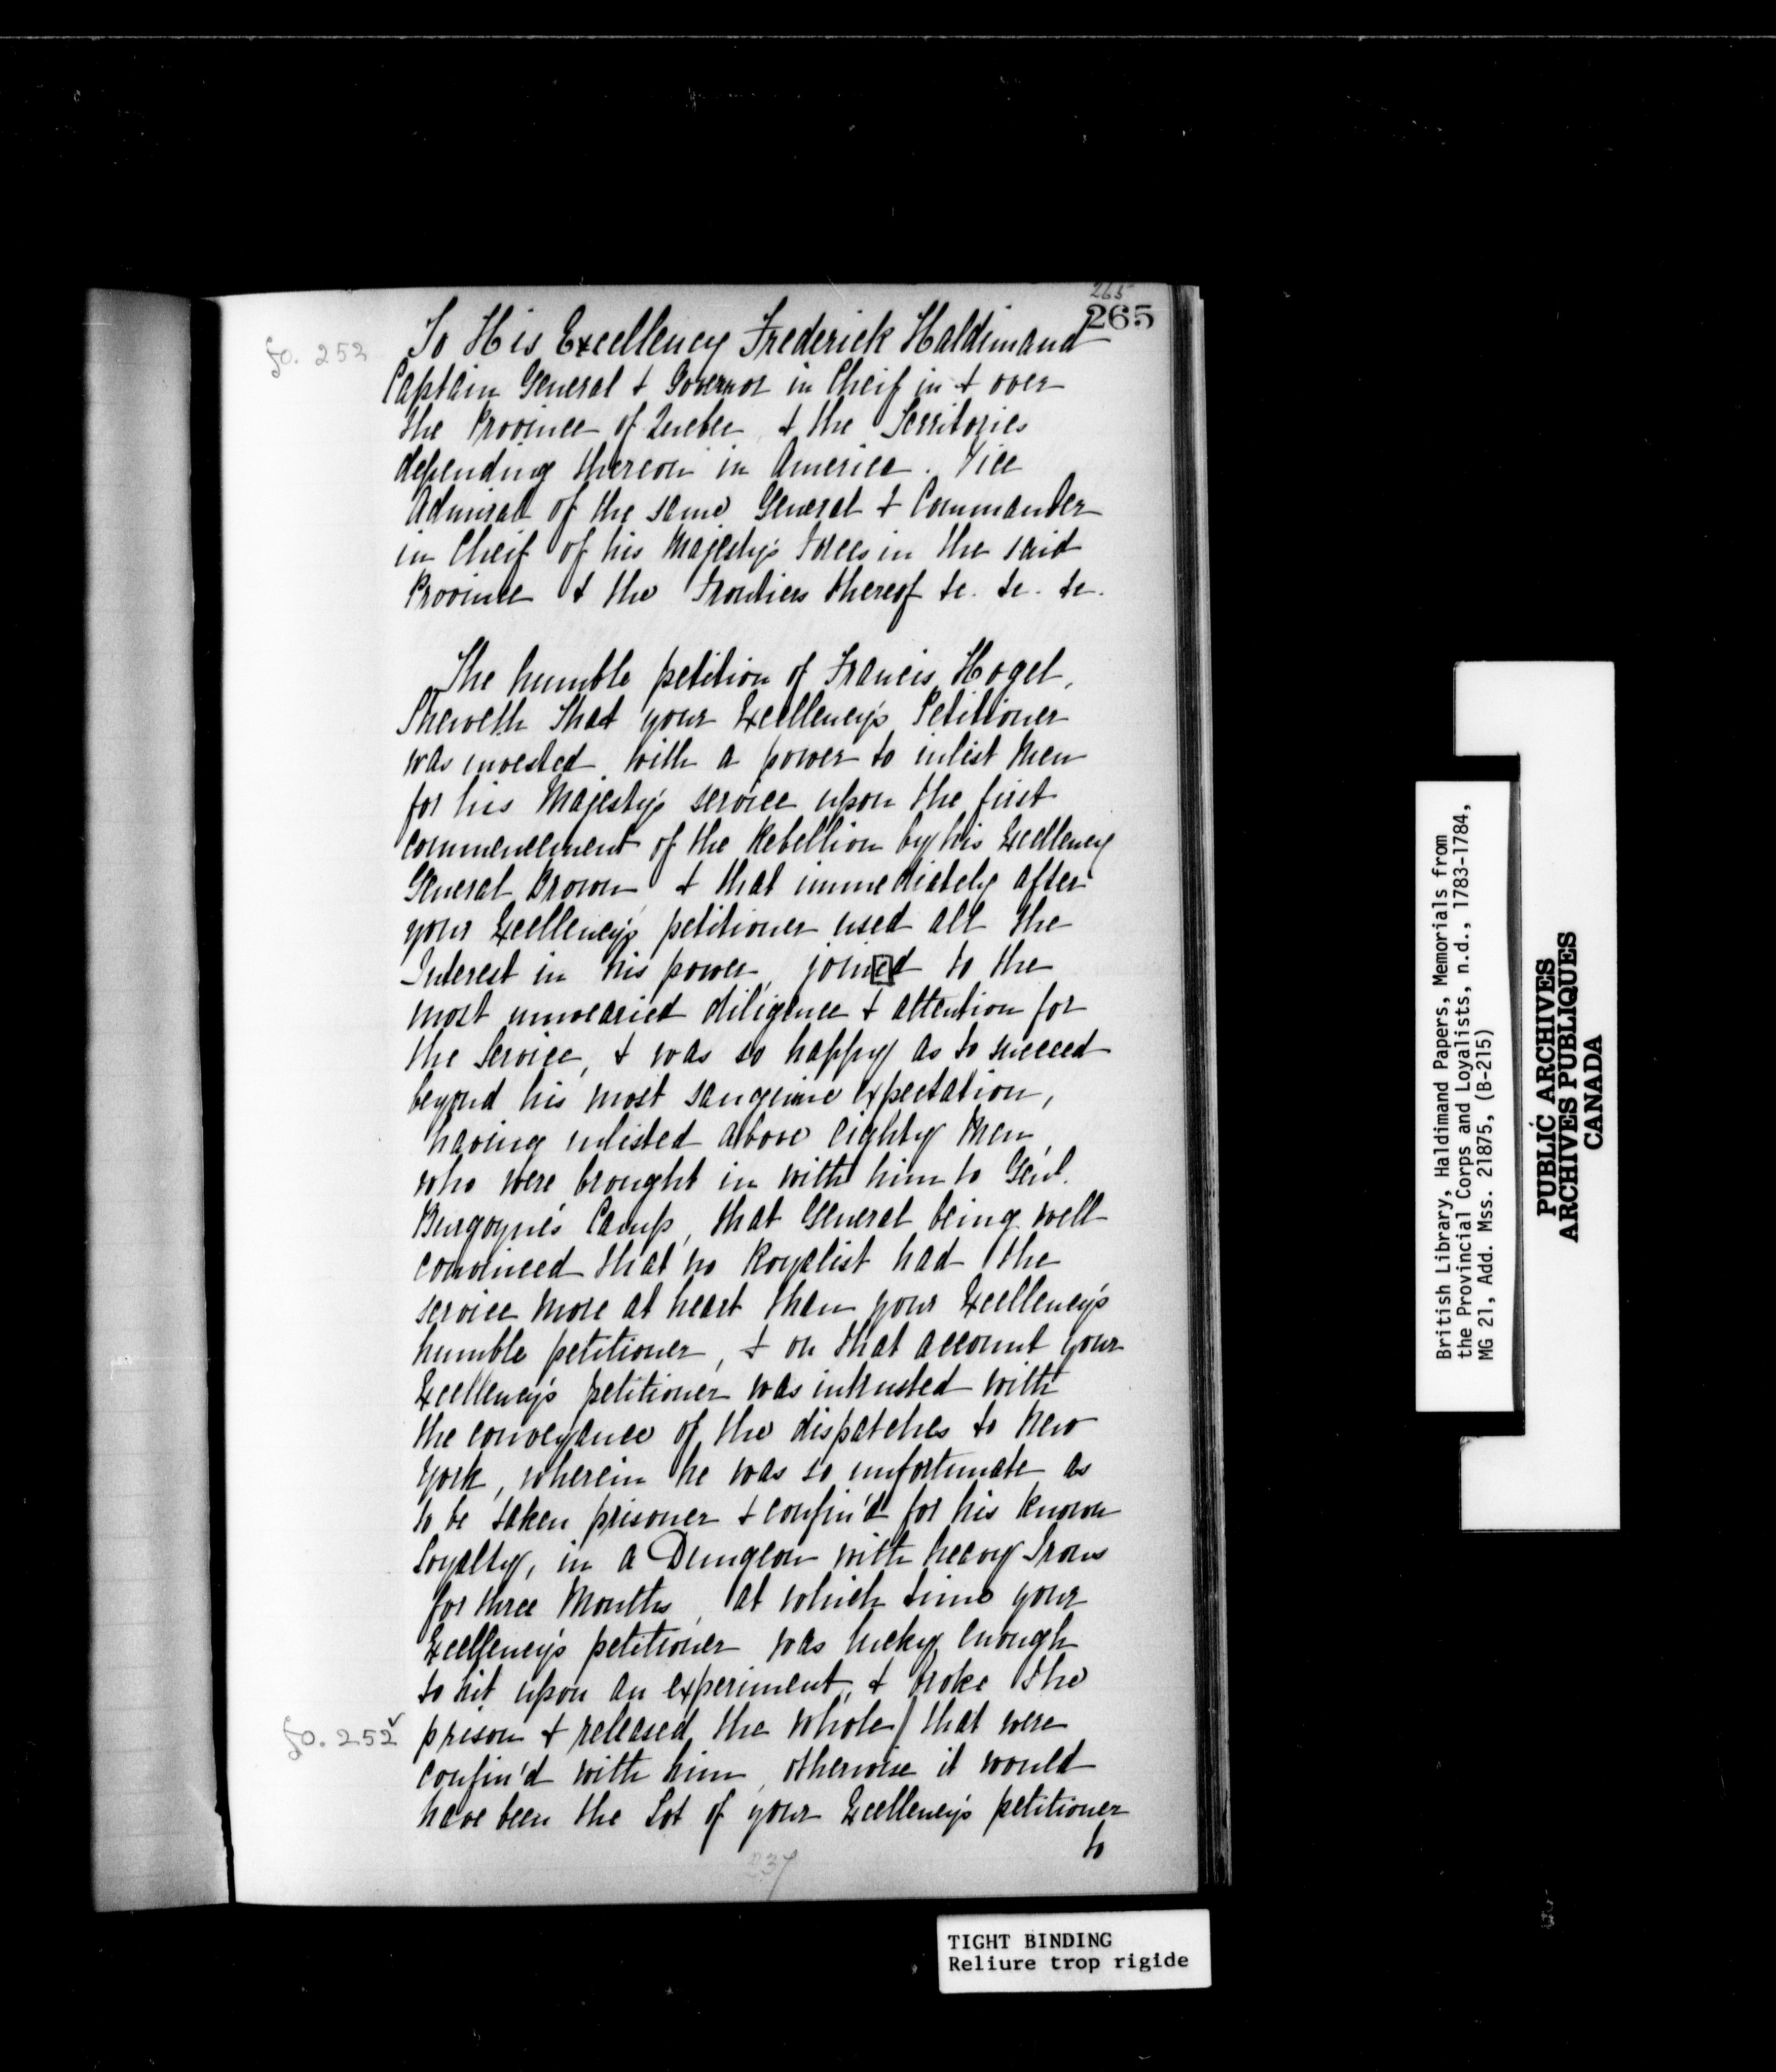 265
265
fo. 252
To His Excellency Frederick Haldimand
Captain General & Governor in Cheif in & over
the Province of Quebec & the Territories
depending thereon in America. Vice
Admiral of the same General & Commander
in Cheif of his Majesty's Forces in the said
Province & the Frontiers thereof &c. &c. &c.
The humble petition of Francis Hogel,
Sheweth That your Excellency's Petitioner
was invested with a power to inlist Men
for his Majesty's service upon the first
commencement of the Rebellion by his Excellency
General Brown, & that immediately after
your Excellency's petitioner used all the
Interest in his power, joined to the
most unwearied diligence & attention for
the Service, & was so happy as to succeed
beyond his most sanguine expectation,
having inlisted above eighty Men,
who were brought in with him to Gen'l.
Burgoyne's Camp, that General being well
convinced that no Royalist had the
service more at heart than your Excellency's
humble petitioner, & on that account your
Excellency's petitioner was intrusted with
the conveyance of the dispatches to New
York, wherein he was so unfortunate as
to be taken prisoner & confin'd for his known
Loyalty, in a Dungeon with heavy Irons
for three Months, at which time your
Excellency's petitioner was lucky enough
to hit upon an experiment, & broke the
fo. 252v prison & released the whole / that were
confin'd with him, otherwise it would
have been the Lot of your Excellency's petitioner
to
237
TIGHT BINDING
Reliure trop rigide
British Library, Haldimand Papers, Memorials from
the Provincial Corps and Loyalists, n.d., 1783-1784,
MG 21, Add. Mss. 21875, (B-215)
PUBLIC ARCHIVES
ARCHIVES PUBLIQUES
CANADA